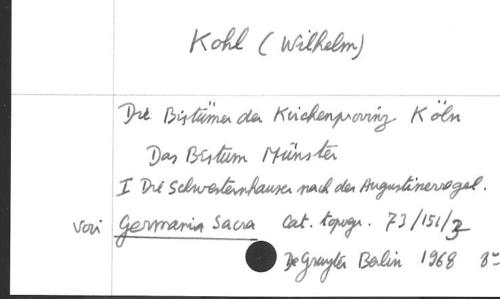 Kohl (Wilhelm)
Die Bistümer der Kirchenprovinz Köln
Das Bistum Münster
I Die Schwesternhäuser nach der Augustinerregel.
voir Germania Sacra Cat. topogr. 73/151/3
De Gruyter Berlin 1968 8°